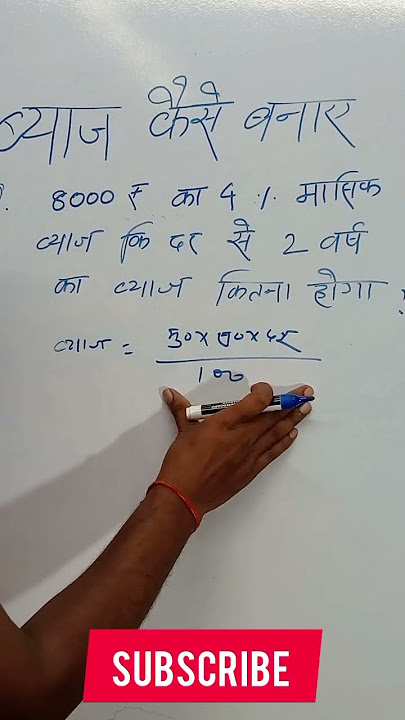 ब्याज कैसे बनाए
8000 ₹ का 4 % मासिक
ब्याज कि दर से 2 वर्ष
का ब्याज कितना होगा ?
ब्याज = मू० x स० x दर
100
SUBSCRIBE